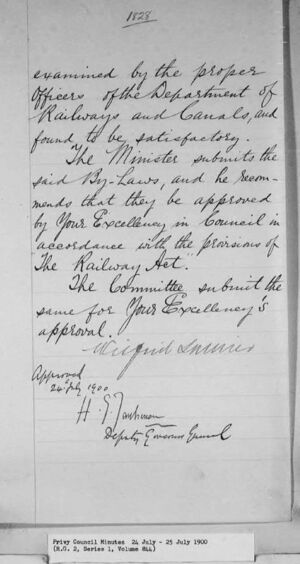 1828
examined by the proper
Officers of the Department of
Railways and Canals, and
found to be satisfactory.
The Minister submits the
said By-Laws, and he recom-
mends that they be approved
by Your Excellency in Council in
accordance with the provisions of
"The Railway Act".
The Committee submit the
same for Your Excellency's
approval.
Wilfrid Laurier
Approved
24 July 1900
H. S.
Deputy Governor General
Privy Council Minutes 24 July - 25 July 1900
(R.G. 2, Series 1, Volume 844)